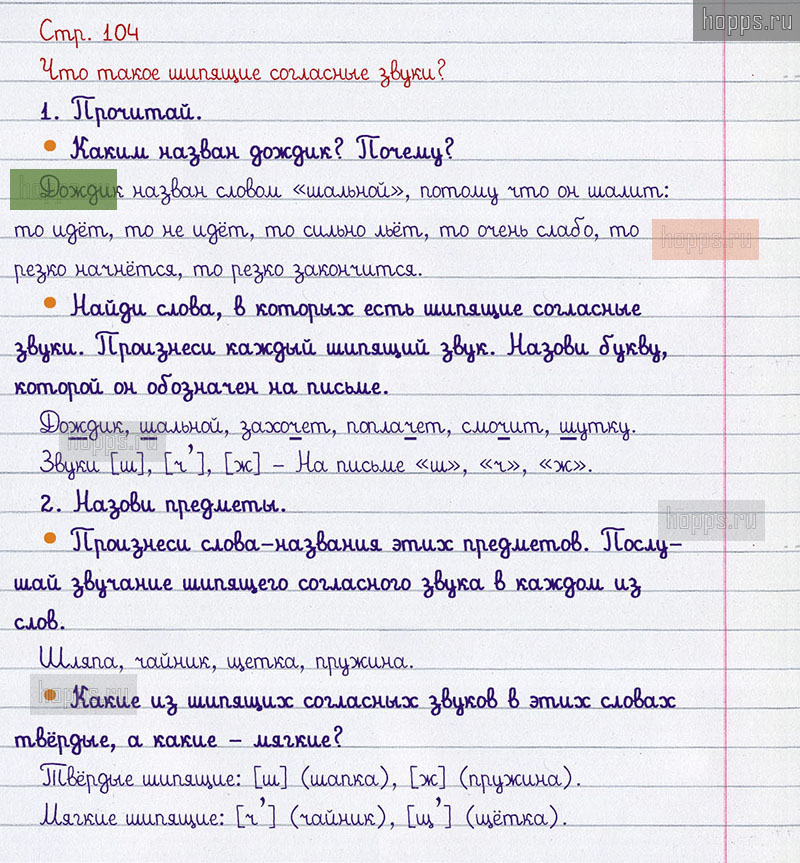 hopps.ru
Стр. 104
Что такое шипящие согласные звуки?
1. Прочитай.
• Каким назван дождик? Почему?
Дождик назван словом «шальной», потому что он шалит:
то идёт, то не идёт, то сильно льёт, то очень слабо, то
hopps.ru
резко начнётся, то резко закончится.
• Найди слова, в которых есть шипящие согласные
звуки. Произнеси каждый шипящий звук. Назови букву,
которой он обозначен на письме.
Дождик, шальной, захочет, поплачет, смочит, шутку.
hopps.ru
Звуки [ш], [ч’], [ж] – На письме «ш», «ч», «ж».
2. Назови предметы.
hopps.ru
• Произнеси слова-названия этих предметов. Послу-
шай звучание шипящего согласного звука в каждом из
слов.
Шляпа, чайник, щетка, пружина.
hopps.ru
• Какие из шипящих согласных звуков в этих словах
твёрдые, а какие – мягкие?
Твёрдые шипящие: [ш] (шапка), [ж] (пружина).
Мягкие шипящие: [ч’] (чайник), [щ’] (щётка).